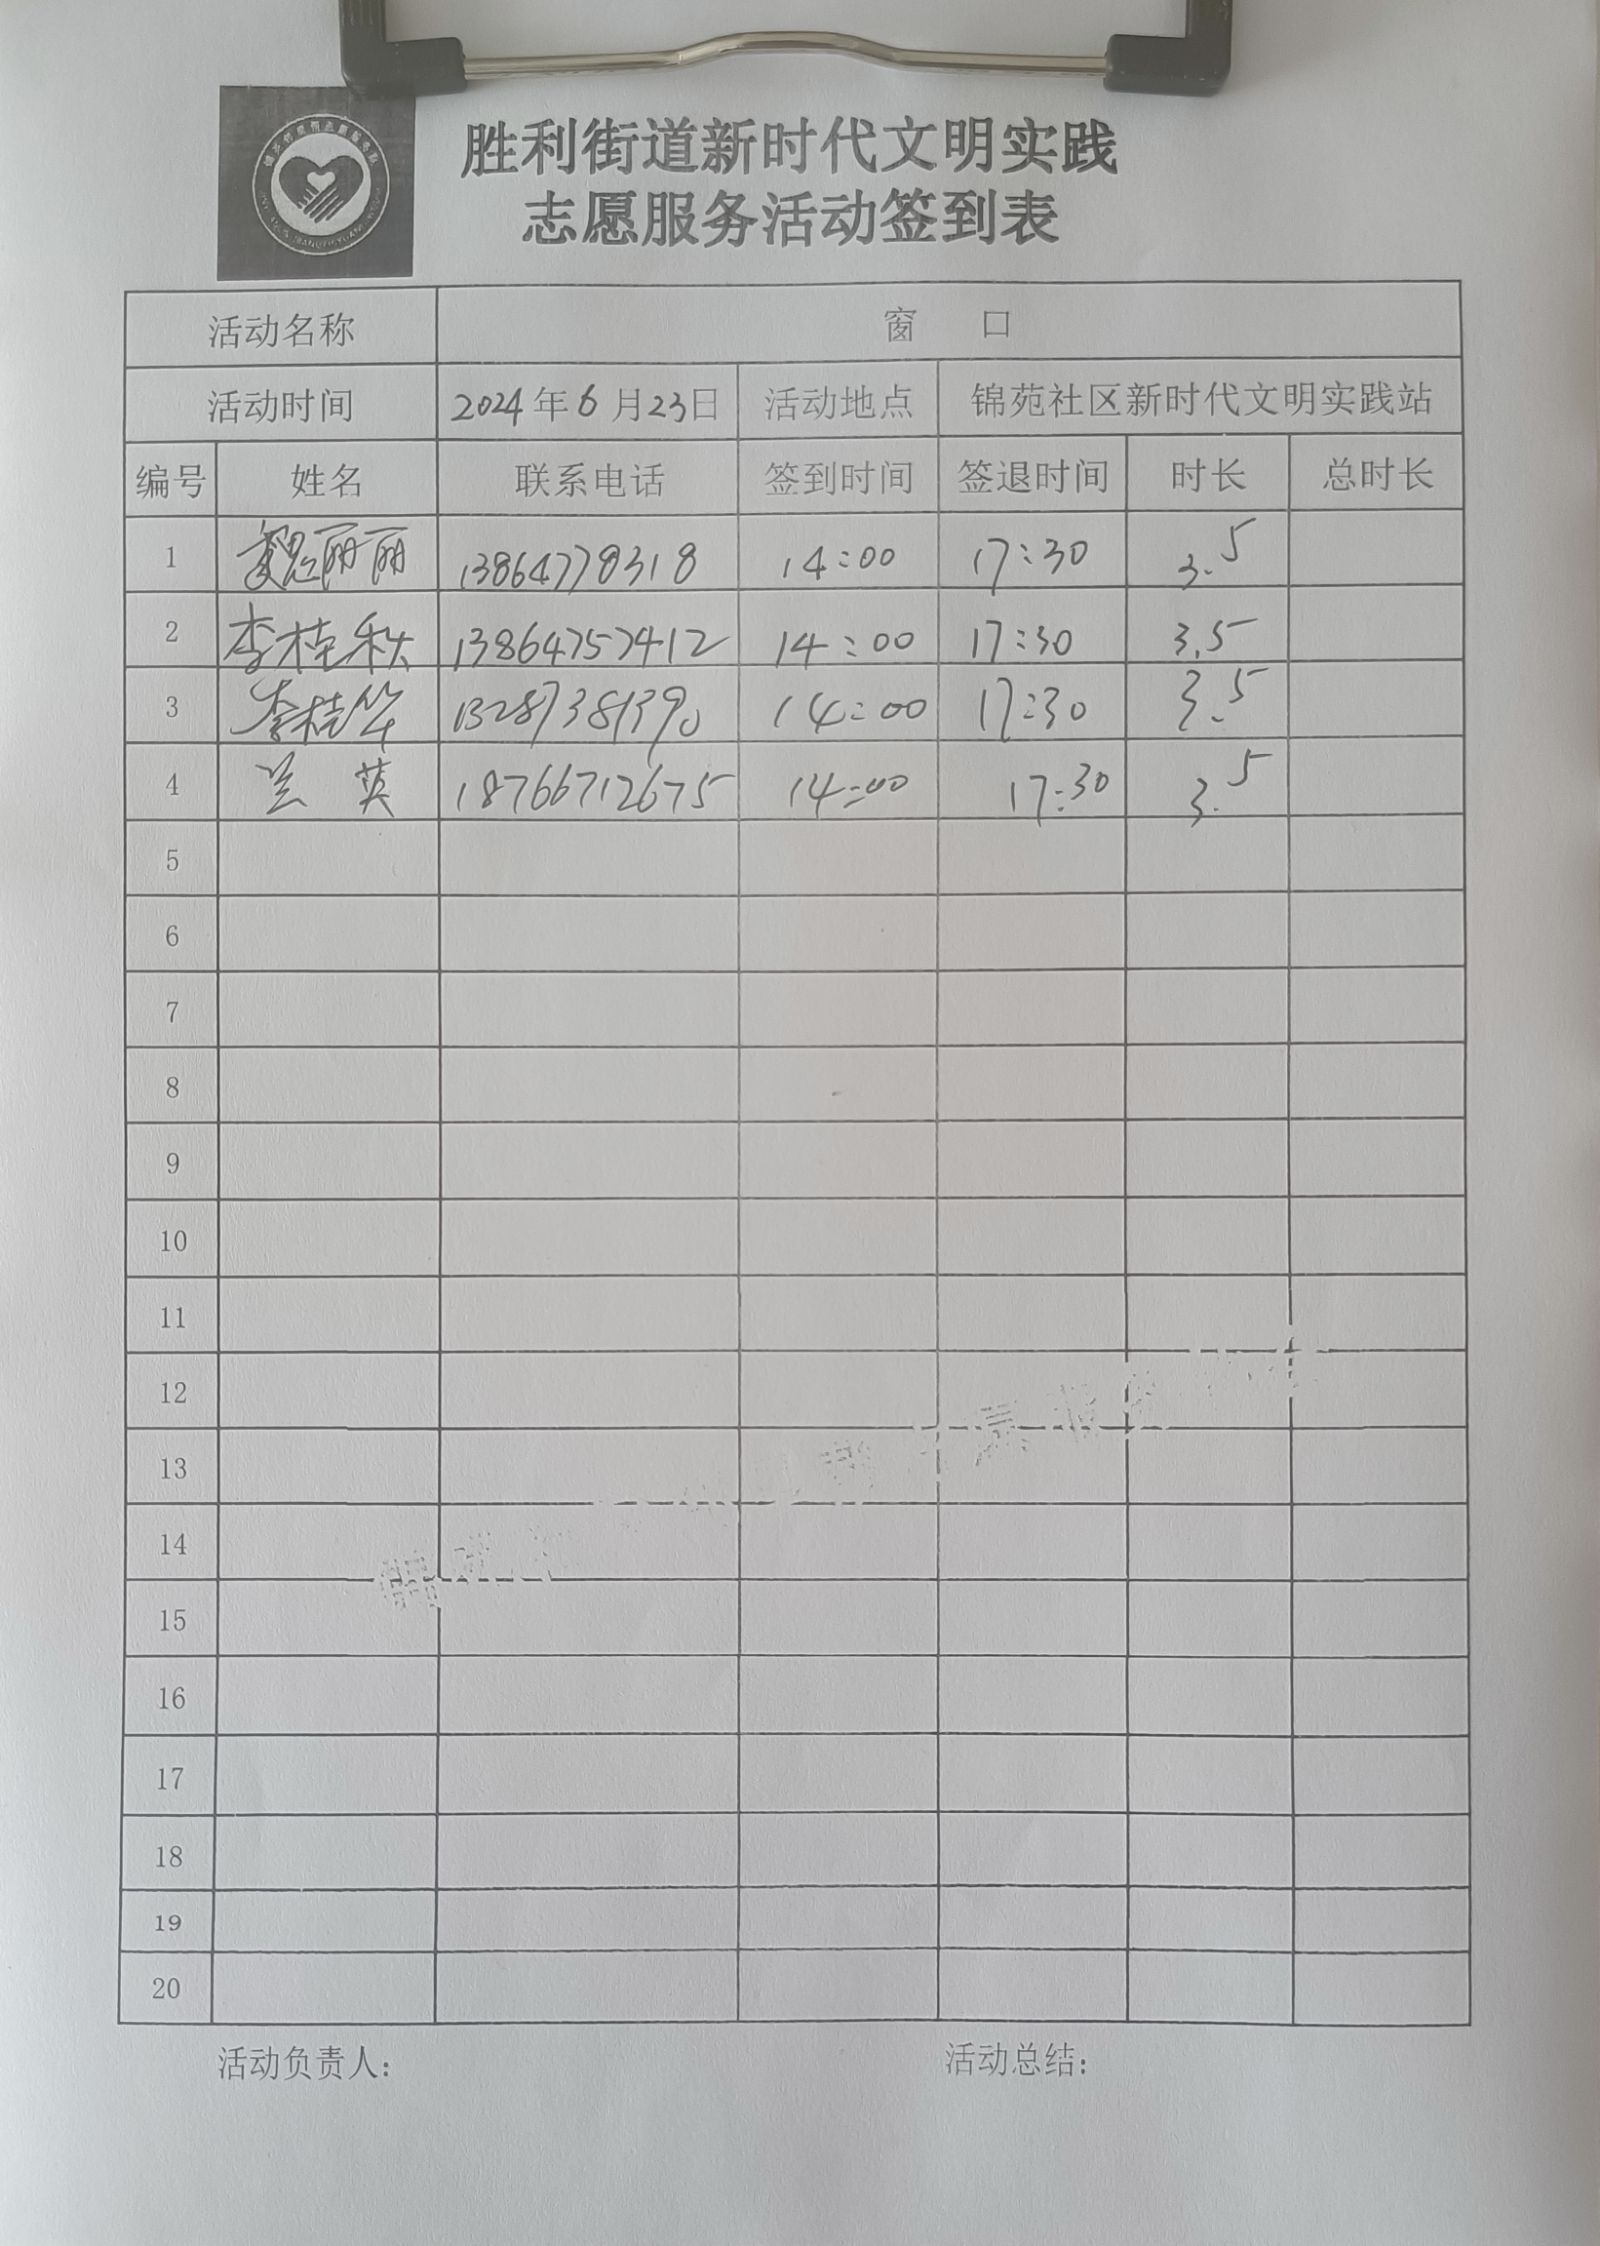 胜利街道新时代文明实践
志愿服务活动签到表
活动名称 窗 口
活动时间 2024年6月23日 活动地点 锦苑社区新时代文明实践站
编号 姓名 联系电话 签到时间 签退时间 时长 总时长
1 魏丽丽 13864778318 14:00 17:30 3.5
2 李桂秋 13864757412 14:00 17:30 3.5
3 李桂华 13287381390 14:00 17:30 3.5
4 兰 英 18766712675 14:00 17:30 3.5
5
6
7
8
9
10
11
12
13
14
15
16
17
18
19
20
活动负责人: 活动总结: